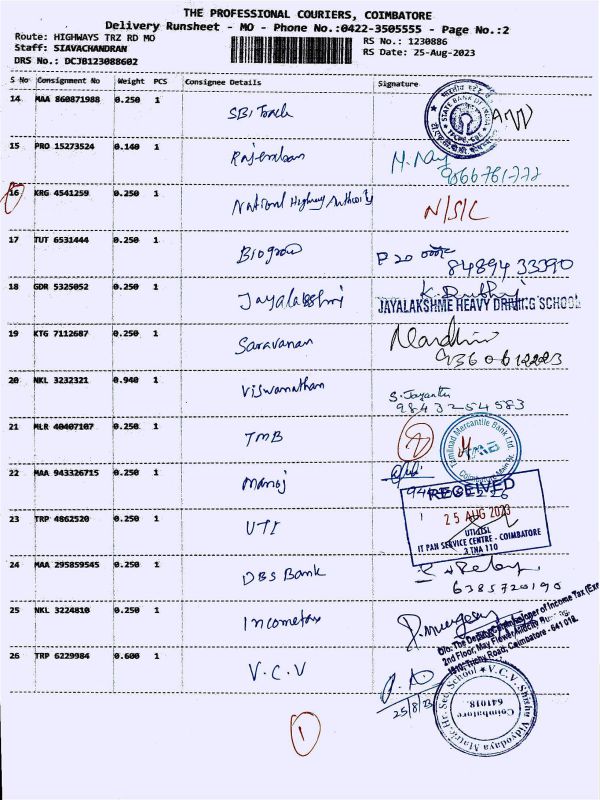 THE PROFESSIONAL COURIERS, COIMBATORE
Delivery Runsheet - MO - Phone No.:0422-3505555 - Page No.:2
Route: HIGHWAYS TRZ RD MO
RS No.: 1230886
Staff: SIAVACHANDRAN
RS Date: 25-Aug-2023
DRS No.: DCJB123088602
S No Consignment No Weight PCS Consignee Details Signature
14 MAA 860871988 0.250 1
STATE BANK OF INDIA
15 PRO 15273524 0.140 1
16 KRG 4541259 0.250 1 National Highway Authority N/S/L
17 TUT 6531444 0.250 1 Biogrow
84894 33390
18 GDR 5325052 0.250 1 Jayalakshmi
JAYALAKSHME HEAVY DRIVING SCHOOL
19 KTG 7112687 0.250 1 Saravanan
20 NKL 3232321 0.940 1 Viswanathan
9843254583
21 MLR 40407107 0.250 1 TMB
Tamilnad Mercantile Bank Ltd.
22 MAA 943326715 0.250 1 Manoj
RECEIVED
23 TRP 4862520 0.250 1 UTI
25 AUG 2023
UTIITSL
IT PAN SERVICE CENTRE - COIMBATORE
3 TNA 110
24 MAA 295859545 0.250 1 DBS Bank
6385720190
25 NKL 3224810 0.250 1 Incometax
2nd Floor, May Flower
Trichy Road, Coimbatore - 641 018.
26 TRP 6229984 0.600 1 V.C.V
25/8/23
V.C.V. Shishu Vidyodaya Matric. Hr. Sec. School
Coimbatore
641018.
1